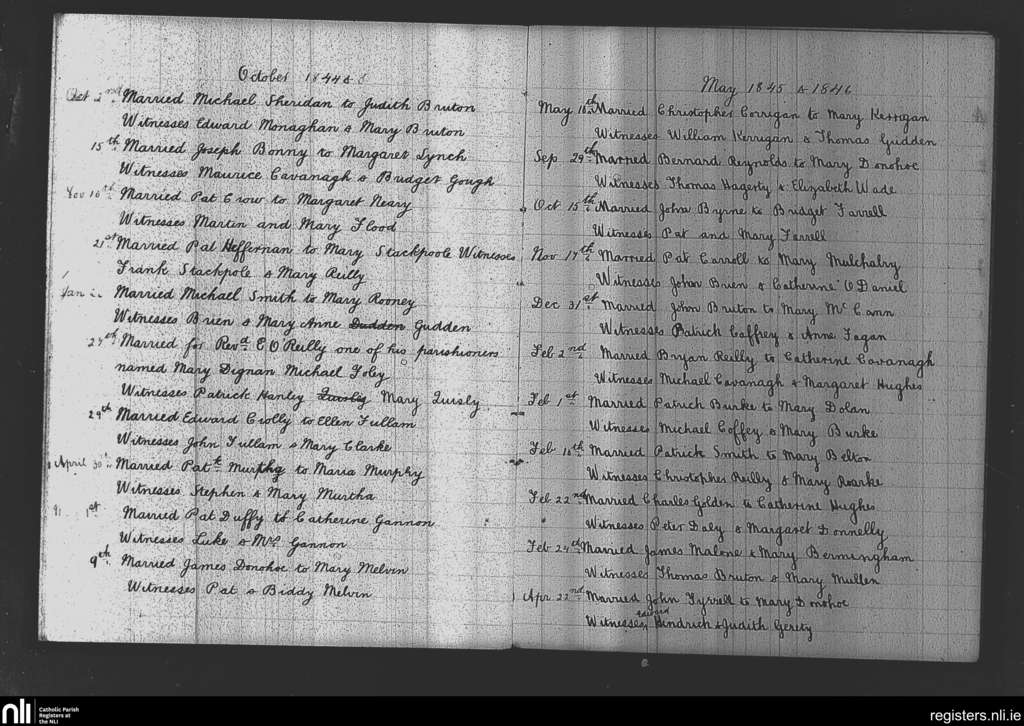 October 1844 &
Oct 2nd Married Michael Sheridan to Judith Bruton
Witnesses Edward Monaghan & Mary Bruton
15th Married Joseph Bonny to Margaret Lynch
Witnesses Maurice Cavanagh & Bridget Gough
Nov 16th Married Pat Crow to Margaret Neary
Witnesses Martin and Mary Flood
21st Married Pat Heffernan to Mary Stackpoole Witnesses
Frank Stackpole & Mary Reilly
Jan Married Michael Smith to Mary Rooney
Witnesses Brien & Mary Anne Duddon Gudden
27th Married for Revd E O Reilly one of his parishioners
named Mary Dignan Michael Foley
Witnesses Patrick Hanley Quisly Mary Quisly
29th Married Edward Crolly to Ellen Fullam
Witnesses John Fullam & Mary Clarke
April 30th Married Patk Murphy to Maria Murphy
Witnesses Stephen & Mary Murtha
1st Married Pat Duffy to Catherine Gannon
Witnesses Luke & Mrs Gannon
9th Married James Donohoe to Mary Melvin
Witnesses Pat & Biddy Melvin
May 1845 & 1846
May 18th Married Christopher Corrigan to Mary Kerrigan
Witnesses William Kerrigan & Thomas Gudden
Sep 29th Married Bernard Reynolds to Mary Donohoe
Witnesses Thomas Hagerty & Elizabeth Wade
Oct 15th Married John Byrne to Bridget Farrell
Witnesses Pat and Mary Farrell
Nov 17th Married Pat Carroll to Mary Mulchalry
Witnesses John Brien & Catherine O Daniel
Dec 31st Married John Bruton to Mary McCann
Witnesses Patrick Caffrey & Anne Fagan
Feb 2nd Married Bryan Reilly to Catherine Cavanagh
Witnesses Michael Cavanagh & Margaret Hughes
Feb 1st Married Patrick Burke to Mary Dolan
Witnesses Michael Coffey & Mary Burke
Feb 18th Married Patrick Smith to Mary Belton
Witnesses Christopher Reilly & Mary Roarke
Feb 22nd Married Charles Golden to Catherine Hughes
Witnesses Peter Daly & Margaret Donnelly
Feb 24th Married James Malone & Mary Bermingham
Witnesses Thomas Bruton & Mary Mullen
Apr 22nd Married John Tyrrell to Mary Donohoe
Witnesses Edward Hindrich & Judith Gerety
nli Catholic Parish
Registers at
the NLI
registers.nli.ie